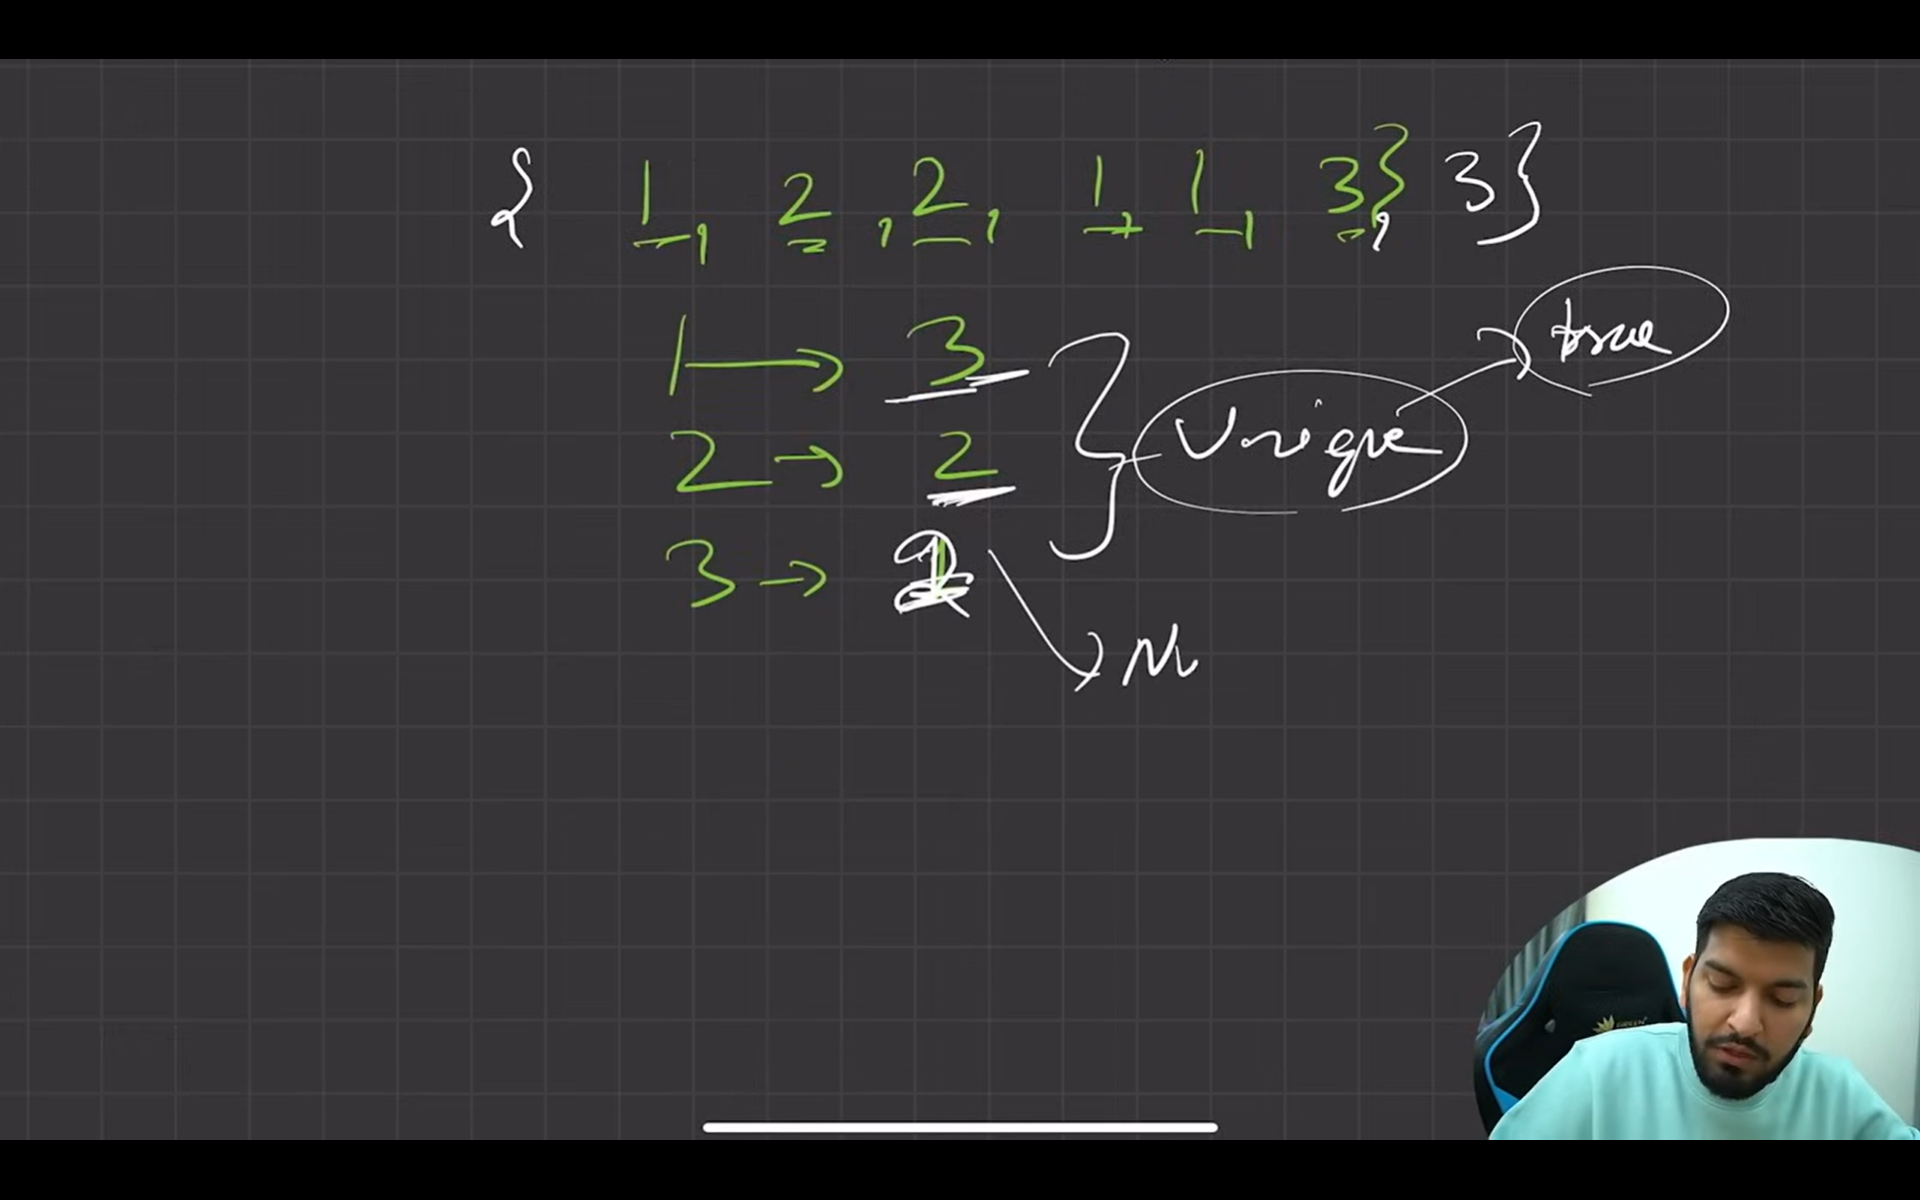 { 1, 2, 2, 1, 1, 3}, 3}
1 → 3
2 → 2
3 → 2
Unique
true